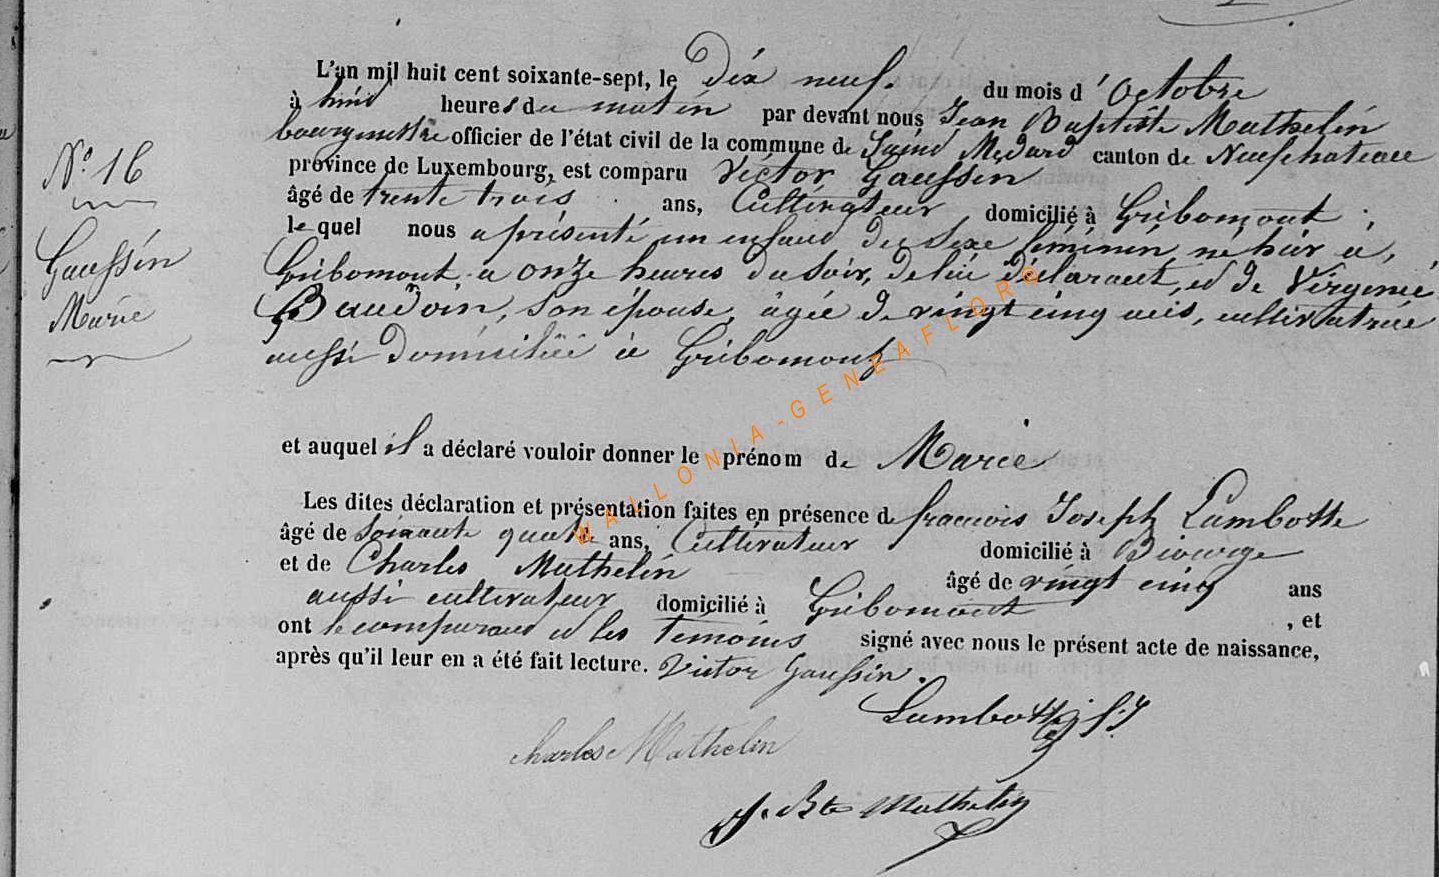 L'an mil huit cent soixante-sept, le Dix neuf du mois d'Octobre
à huit heures du matin par devant nous Jean Baptiste Mathelin
bourgmestre officier de l'état civil de la commune de Saint Médard canton de Neufchateau
province de Luxembourg, est comparu Victor Gaussin
âgé de trente trois ans, Cultivateur domicilié à Gribomont
le quel nous a présenté un enfant du sexe féminin, né hier à
Gribomont a onze heures du soir, de lui déclarant, et de Virginie
Baudoin, son épouse, âgée de vingt cinq ans, cultivatrice
aussi domiciliée à Gribomont
N° 16
Gaussin
Marie
et auquel il a déclaré vouloir donner le prénom de Marie
Les dites déclaration et présentation faites en présence de françois Joseph Lambotte
âgé de soixante quatre ans, Cultivateur domicilié à Biourge
et de Charles Mathelin âgé de vingt cinq ans
aussi cultivateur domicilié à Gribomont, et
ont le comparant et les témoins signé avec nous le présent acte de naissance,
après qu'il leur en a été fait lecture. Victor Gaussin.
Lambotte f. J.
charles Mathelin
J. Bte Mathelin
WALLONIA-GENEAFLORE